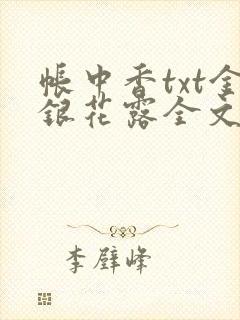 帐中香txt金
银花露全文
李壁峰